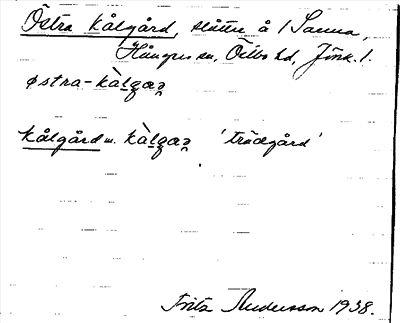 Östra Kålgård, slåtte å 1 Sanna,
Hångers sn, Östbo hd, Jönk. l.
østra-kàlgaṛ
kålgård m. kàlgaṛ 'trädgård'
Frits Andersson 1938.